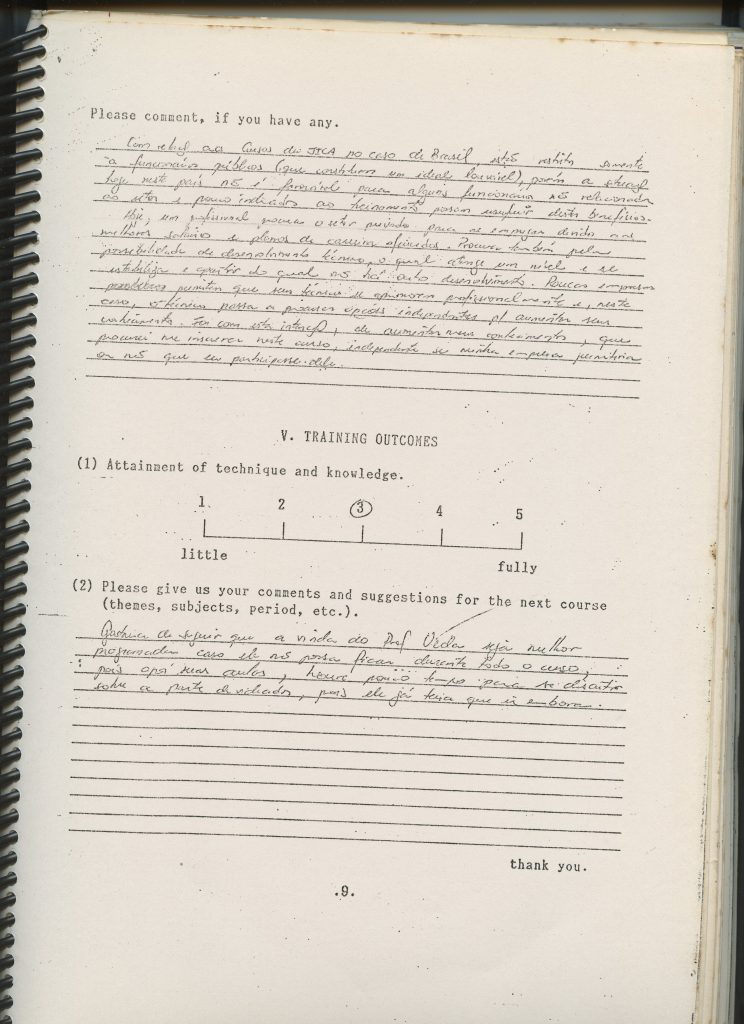 Please comment, if you have any.
Com relação aos Cursos da JICA no caso do Brasil, estão restritos somente
a funcionários públicos (que constituem um ideal louvável), porém a situação
hoje neste país não é favorável para alguns funcionários não relacionados
ao setor e pouco indicados ao treinamento possam usufruir destes benefícios.
Hoje, um profissional procura o setor privado para se empregar devido aos
melhores salários e planos de carreira oferecidos. Procura também pela
possibilidade de desenvolvimento técnico, o qual atinge um nível e se
estabiliza e a partir do qual não há auto desenvolvimento. Poucas empresas
permitem que seus técnicos se aprimorem profissionalmente e, neste
caso, o técnico passa a procurar opções independentes p/ aumentar seus
conhecimento. Foi com esta intenção, de aumentar meus conhecimentos, que
procurei me inscrever neste curso, independente se minha empresa permitiria
ou não que eu participasse dele.
V. TRAINING OUTCOMES
(1) Attainment of technique and knowledge.
1 2 3 4 5
little fully
(2) Please give us your comments and suggestions for the next course
(themes, subjects, period, etc.).
Gostaria de sugerir que a vinda do Prof Ueda seja melhor
programada caso ele não possa ficar durante todo o curso,
pois após suas aulas, houve pouco tempo para se discutir
sobre a parte de vedados, pois ele já teria que ir embora.
thank you.
.9.